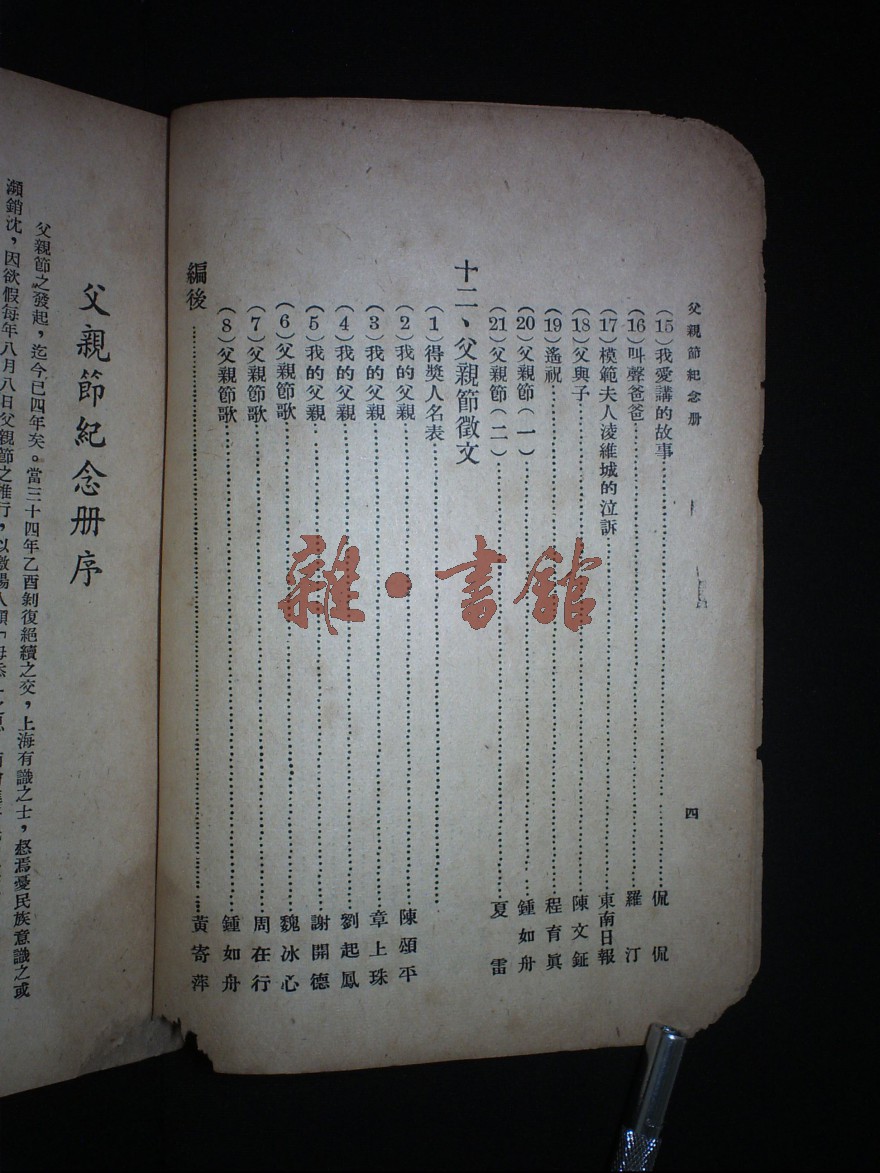 父親節紀念册
四
(15)我愛講的故事……侃侃
(16)叫聲爸爸……羅汀
(17)模範夫人淩維城的泣訴……東南日報
(18)父與子……陳文鉦
(19)遙祝……程育眞
(20)父親節(一)……鍾如舟
(21)父親節(二)……夏雷
十二、父親節徵文
(1)得獎人名表……
(2)我的父親……陳頌平
(3)我的父親……章上珠
(4)我的父親……劉起鳳
(5)我的父親……謝開德
(6)父親節歌……魏冰心
(7)父親節歌……周在行
(8)父親節歌……鍾如舟
編後……黃寄萍
父親節紀念册序
父親節之發起,迄今已四年矣。當三十四年乙酉剝復絕續之交,上海有識之士,惄焉憂民族意識之或
瀕銷沈,因欲假每年八月八日父親節之推行,以激揚人類
雜·書館